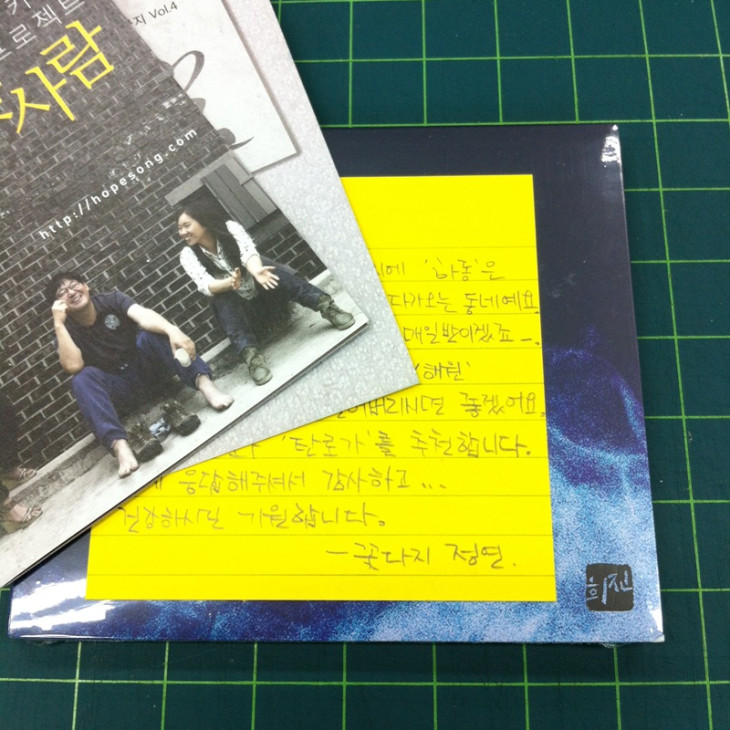 키
프로젝트
사람
지 Vol.4
http://hopesong.com
에 '하동'은
다가오는 동네예요.
매일밤이겠죠 ㅡ.
'해원'
어버리시면 좋겠어요.
'탄로가'를 추천합니다.
응답해주셔서 감사하고...
건강하시킨 기원합니다.
ㅡ꽃다지 정연.
희진